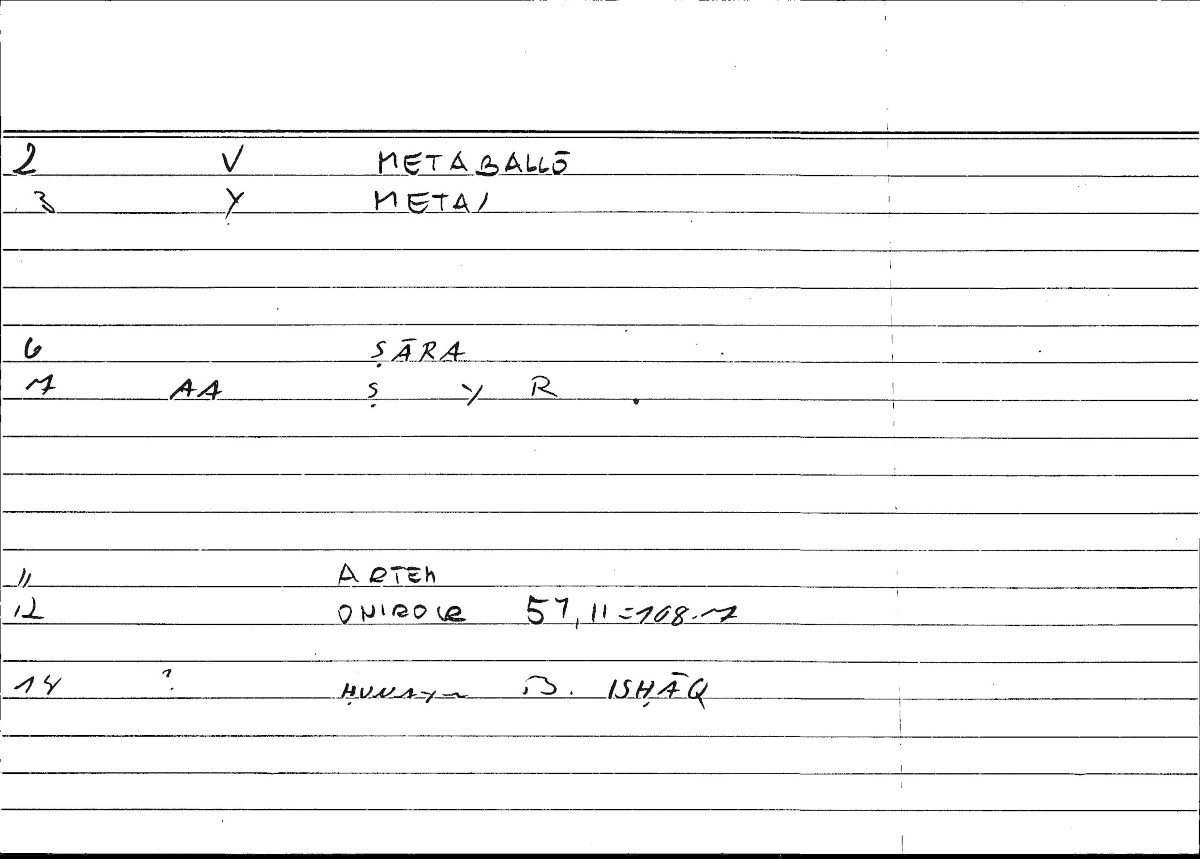 2 V METABALLŌ
3 Y METAI
6 ṢĀRA
7 AA Ṣ Y R .
11 ARTEM
12 ONIROCR 57,11=108.7
14 ? ḤUNAYN B. ISḤĀQ